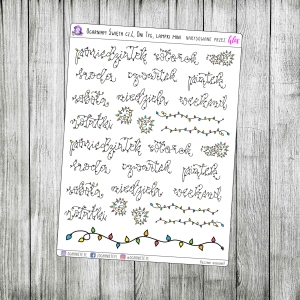 Ogarniamy Święta cz.2, Dni Tyg, lampki mini narysowane przez
poniedziałek wtorek
środa czwartek piątek
sobota niedziela weekend
notatki
poniedziałek wtorek
środa czwartek piątek
sobota niedziela weekend
notatki